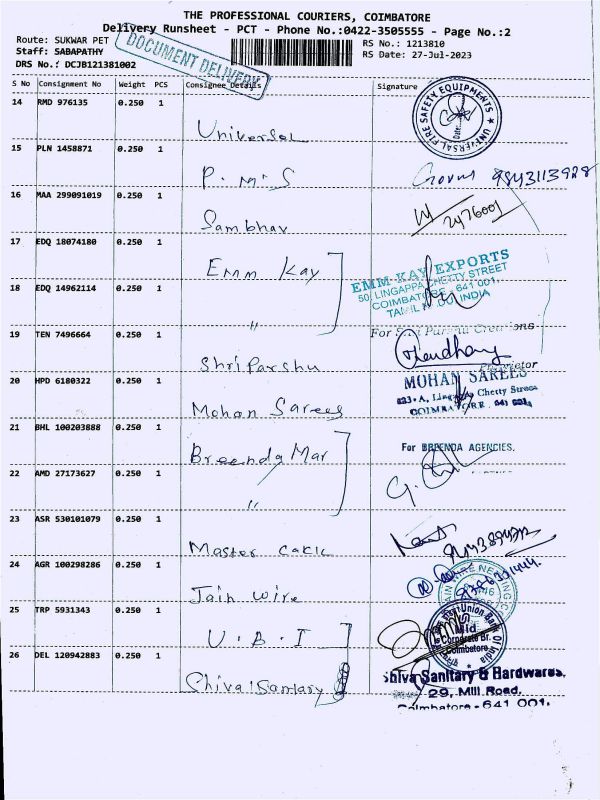 THE PROFESSIONAL COURIERS, COIMBATORE
Delivery Runsheet - PCT - Phone No.:0422-3505555 - Page No.:2
Route: SUKWAR PET
RS No.: 1213810
Staff: SABAPATHY
RS Date: 27-Jul-2023
DRS No.: DCJB121381002
DOCUMENT DELIVERY
S No Consignment No Weight PCS Consignee Details Signature
14 RMD 976135 0.250 1
Universal
UNIVERSAL FIRE SAFETY EQUIPMENTS
Date:
15 PLN 1458871 0.250 1
P.M.S
9843113928
16 MAA 299091019 0.250 1
Sambhav
2476001
17 EDQ 18074180 0.250 1
Emm Kay
EMM-KAY EXPORTS
50, LINGAPPA CHETTY STREET
COIMBATORE - 641 001,
TAMIL NADU INDIA
18 EDQ 14962114 0.250 1
"
For Shri Parshu Creations
19 TEN 7496664 0.250 1
Shri Parshu
Proprietor
20 HPD 6180322 0.250 1
Mohan Sarees
MOHAN SAREES
Chetty Street
COIMBATORE - 641 001.
21 BHL 100203888 0.250 1
Breenda Mar
For BREENDA AGENCIES.
22 AMD 27173627 0.250 1
"
23 ASR 530101079 0.250 1
Master cakle
24 AGR 100298286 0.250 1
Jain wire
25 TRP 5931343 0.250 1
U.B.I
Union Bank Of India
Mid Corporate Br.
Coimbatore
26 DEL 120942883 0.250 1
Shiva Sanitary
Shiva Sanitary & Hardwares,
29, Mill Road,
Coimbatore - 641 001.